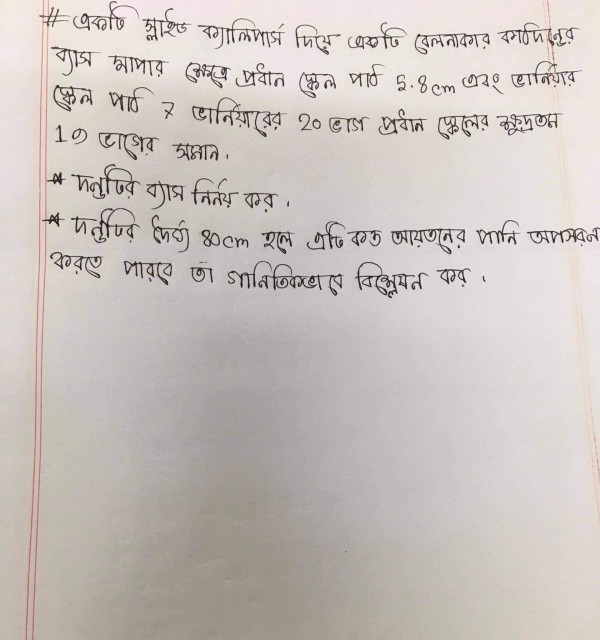 # একটি স্লাইড ক্যালিপার্স দিয়ে একটি বেলনাকার কঠিদন্ডের
ব্যাস মাপার ক্ষেত্রে প্রধান স্কেল পাঠ 5.8cm এবং ভার্নিয়ার
স্কেল পাঠ 7 ভার্নিয়ারের 20 ভাগ প্রধান স্কেলের ক্ষুদ্রতম
19 ভাগের সমান.
* দন্ডটির ব্যাস নির্নয় কর.
* দন্ডটির দৈর্ঘ্য 80cm হলে এটি কত আয়তনের পানি অপসরন
করতে পারবে তা গানিতিকভাবে বিশ্লেষন কর.